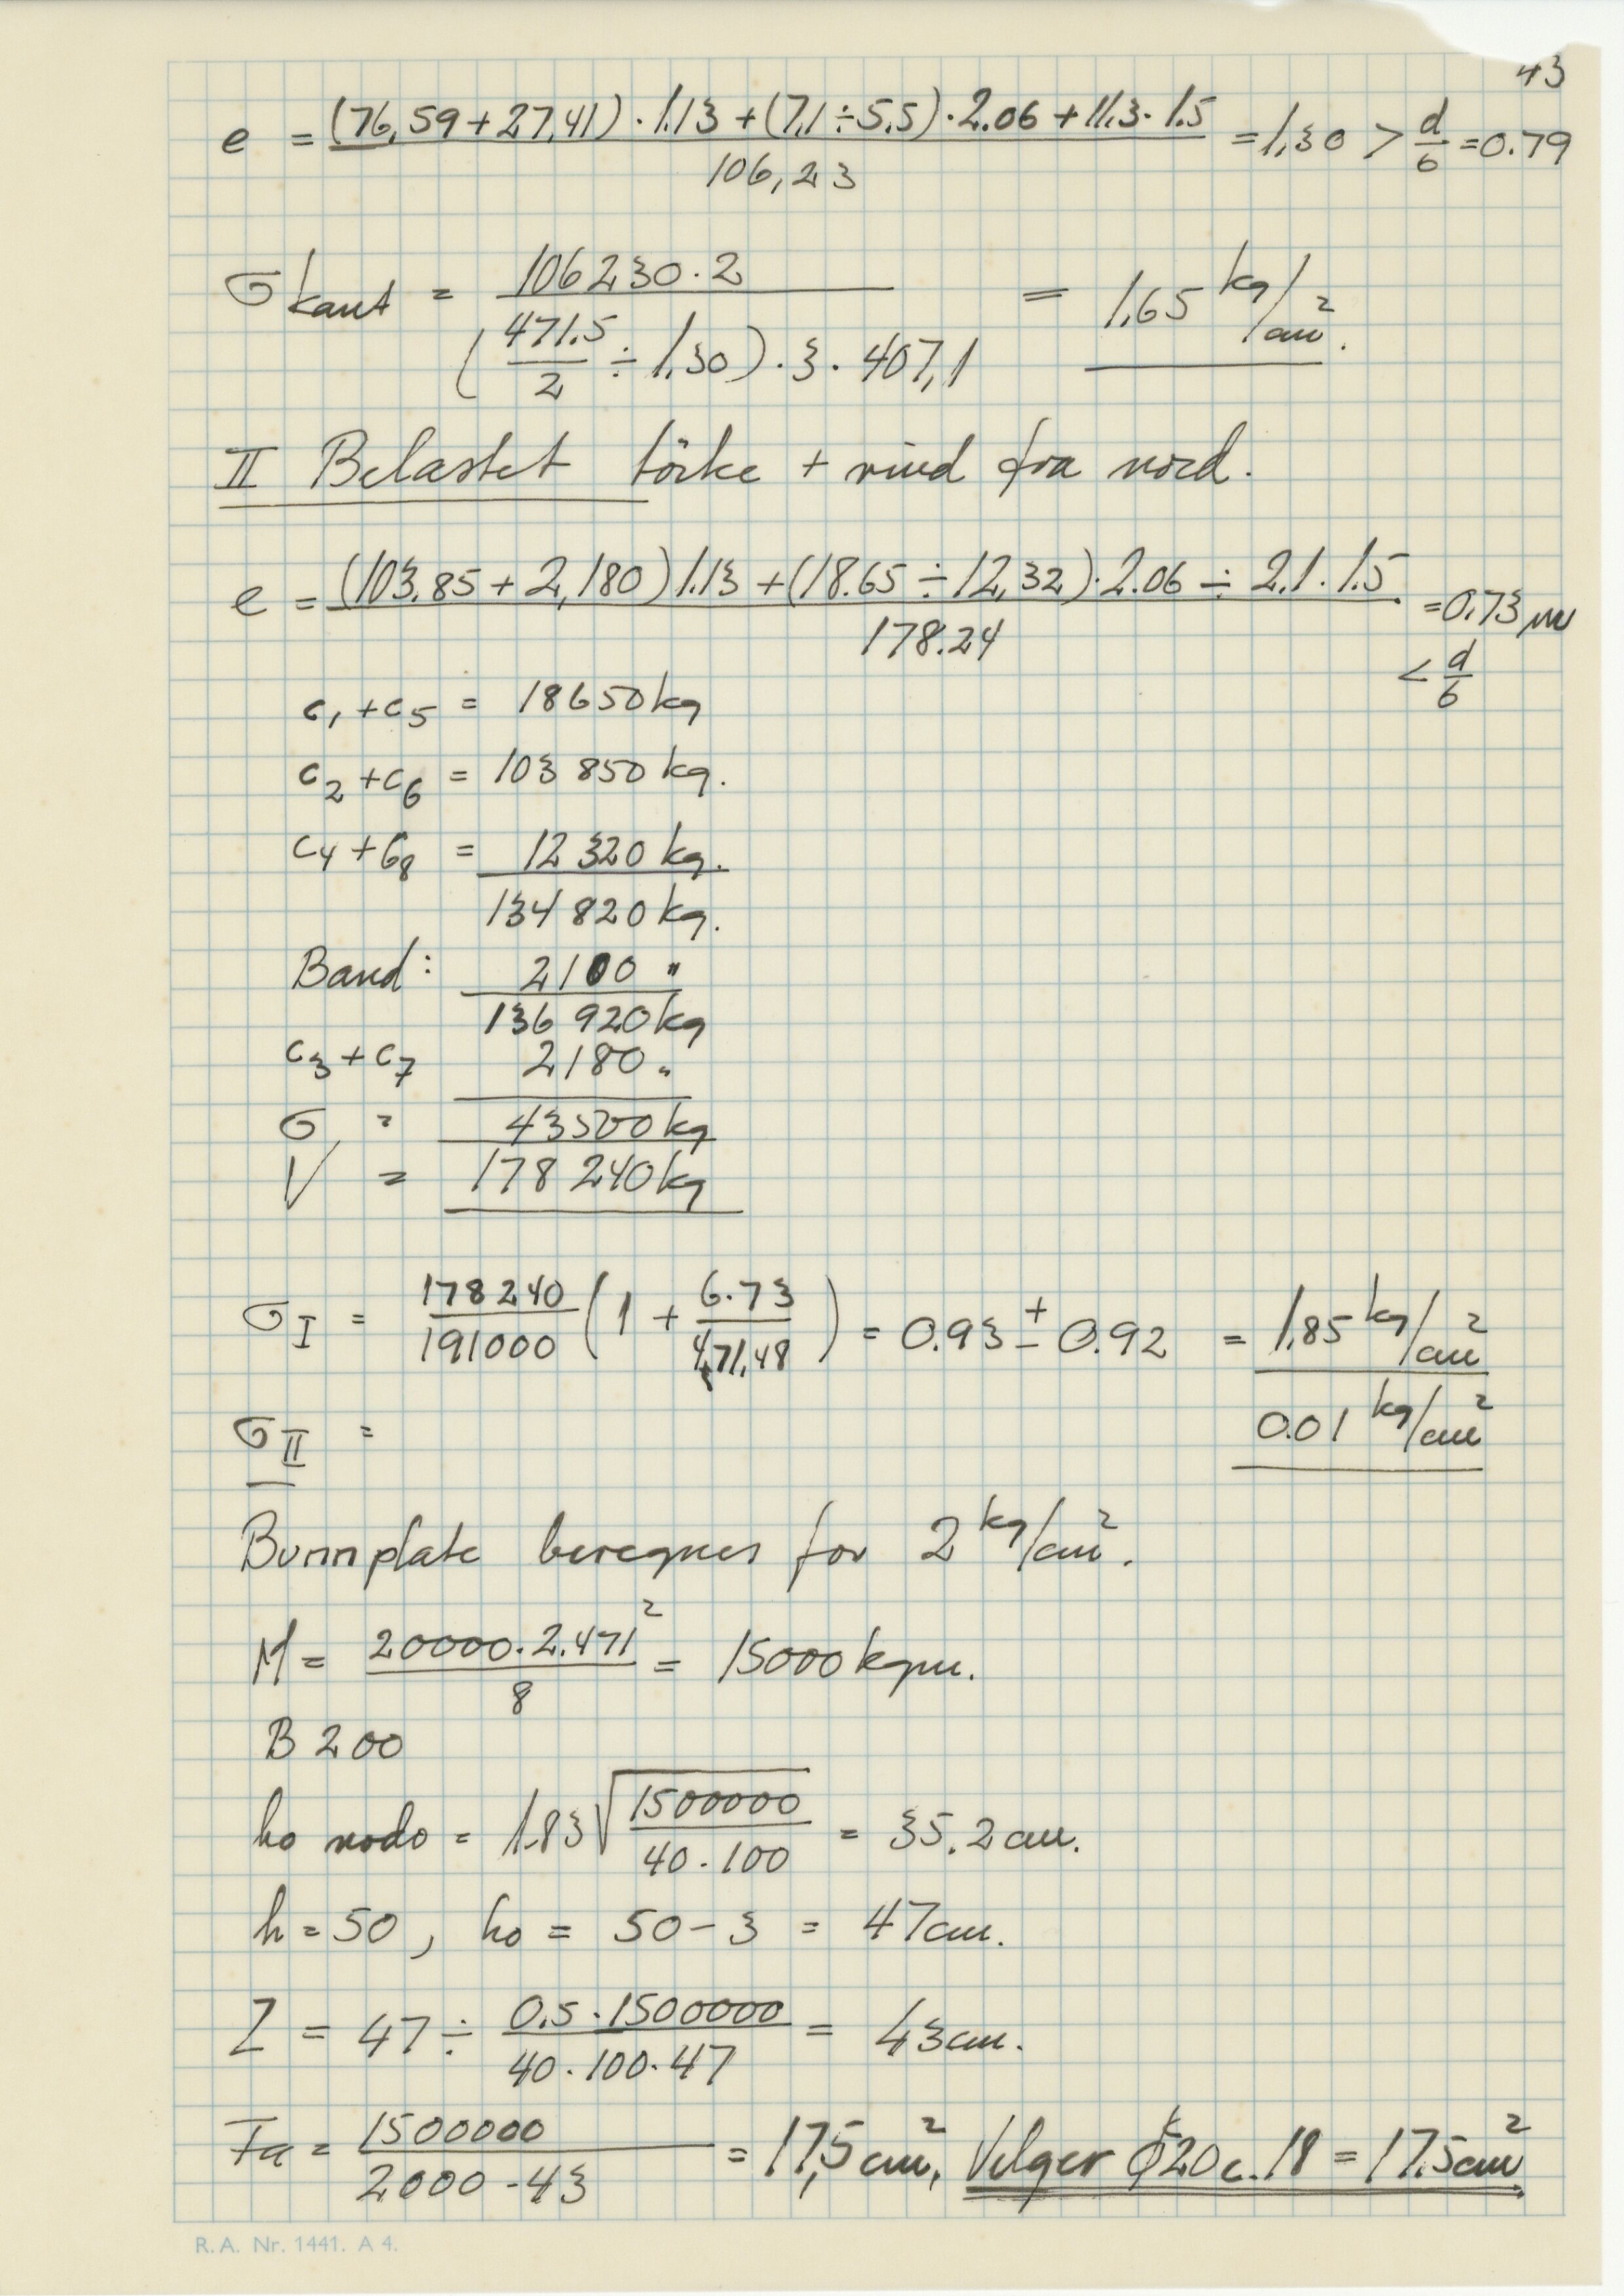 43
e = (76,59+27,41)·1.13+(7,1÷5,5)·2.06+11.3·1.5 / 106,23 = 1,30 > d/6 = 0.79
σ kant = 106230·2 / (471.5/2 ÷ 1,30)·3·407,1 = 1,65 kg/cm².
II Belastet törke + vind fra nord.
e = (103.85+2,180)1.13+(18.65÷12,32)·2.06÷2.1·1.5 / 178.24 = 0.73 m
< d/6
c₁+c₅ = 18650 kg
c₂+c₆ = 103 850 kg.
c₄+c₈ = 12 320 kg.
134 820 kg.
Band: 2100 "
136 920 kg
c₃+c₇ 2180 "
G = 43500 kg
V = 178 240 kg
σ I = 178240/191000 (1 + 6·73/471,48) = 0.93 ± 0.92 = 1,85 kg/cm²
σ II = 0.01 kg/cm²
Bunnplate beregnes for 2 kg/cm².
M = 20000·2.471²/8 = 15000 kgm.
B 200
ho nödv = 1.83 √(1500000/40·100) = 35.2 cm.
h = 50, ho = 50-3 = 47 cm.
Z = 47 ÷ 0.5·1500000/40·100·47 = 43 cm.
Fa = 1500000/2000·43 = 17,5 cm², Velger ϕ20 c.18 = 17.5 cm²
R.A. Nr. 1441. A 4.